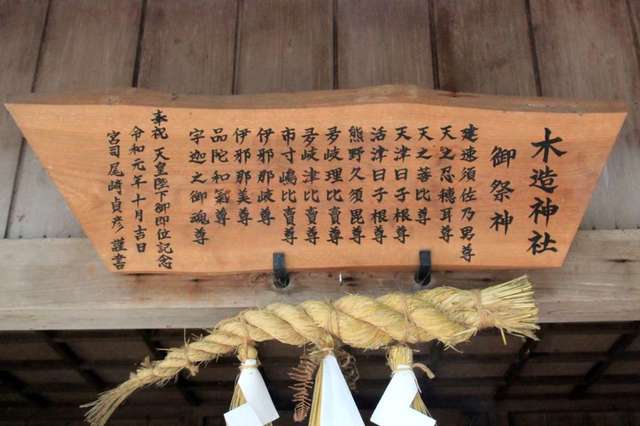 木造神社
御祭神
建速須佐乃男尊
天之忍穂耳尊
天之菩比尊
天津日子根尊
活津日子根尊
熊野久須毘尊
多岐理比賣尊
多岐津比賣尊
市寸嶋比賣尊
伊邪那岐尊
伊邪那美尊
品陀和氣尊
宇迦之御魂尊
奉祝 天皇陛下御即位記念
令和元年十月吉日
宮司 尾崎貞彦 謹書